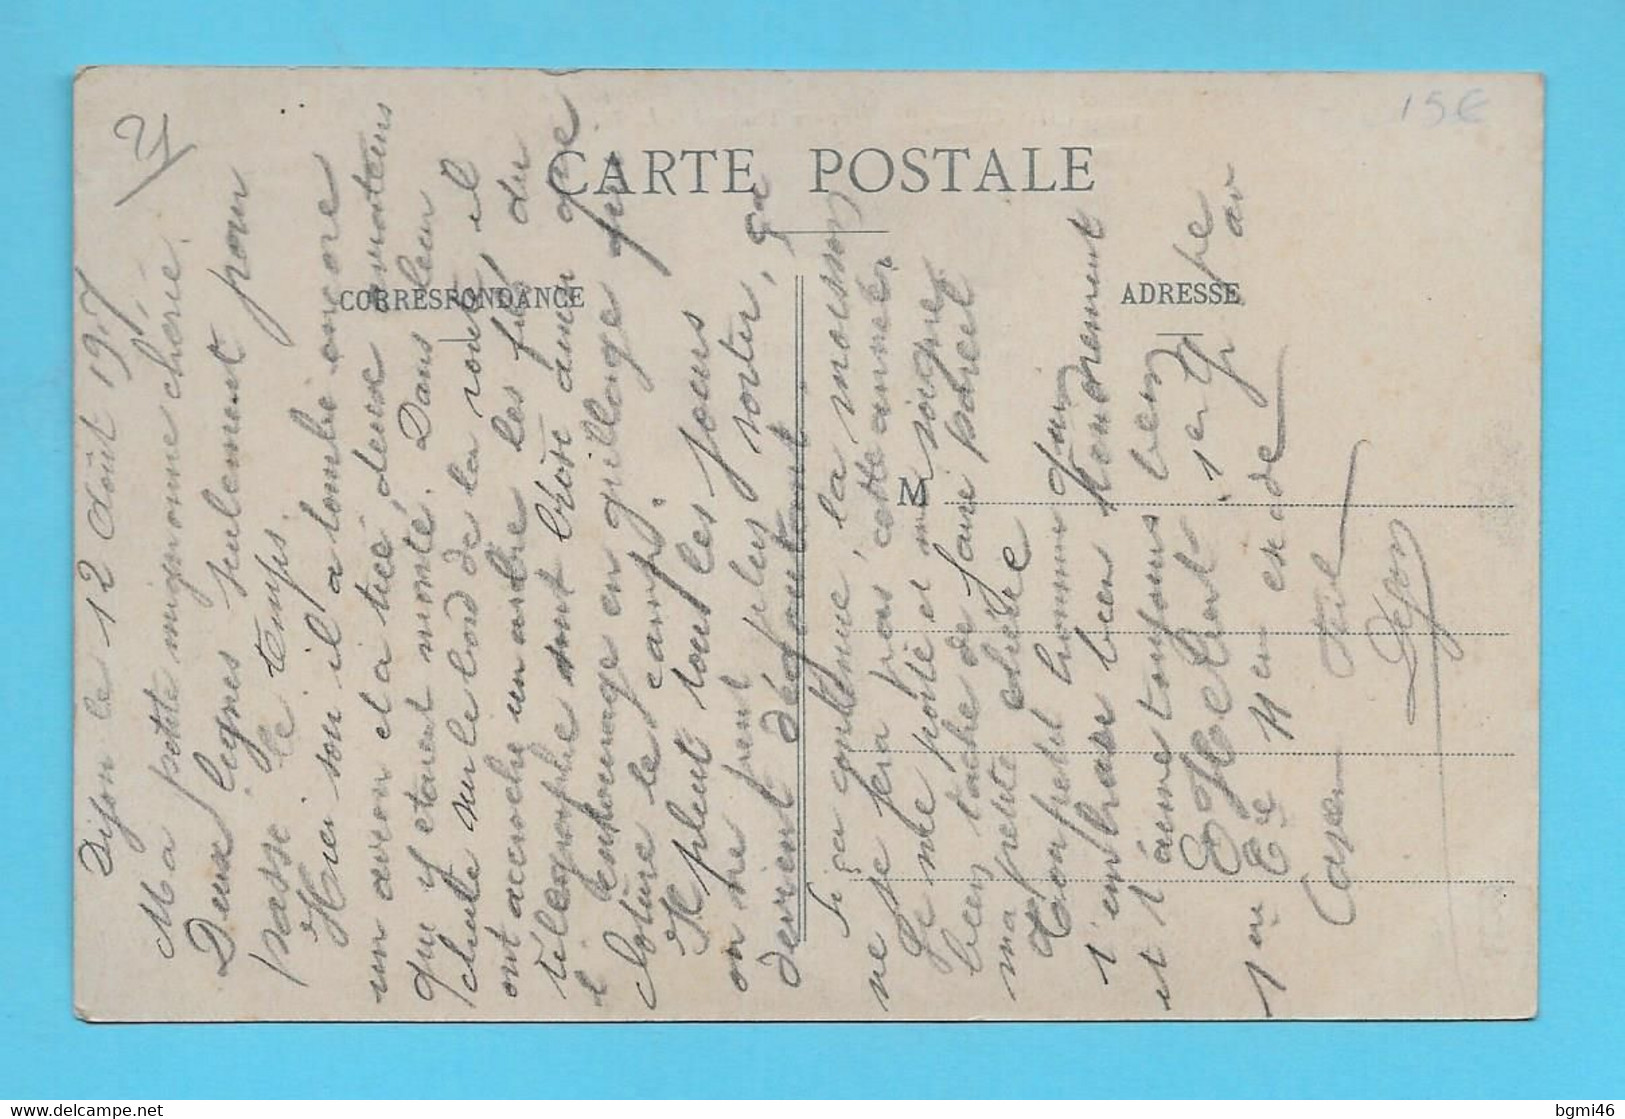 CARTE POSTALE
CORRESPONDANCE
ADRESSE
M
15€
2
Dijon le 12 Août 1917
Ma petite mignonne chérie.
Deux lignes seulement pour
passe le temps.
Hier soir il a tombé encore
un avion et a tué deux aviateurs
qui y etaient monté. Dans leur
chute sur le bord de la route, il
ont accroché un arbre les fils du
télégraphe sont brisé ainsi que
l'entourage en grillage qui
cloture le camp.
Il pleut tout les jours
on ne peut plus sortir, ça
devient dégoutant
Si ça continue, la moisson
ne se fera pas cette année,
Je me porte et me soigne
bien tache de faire pareil
ma petite chérie
Ton petit homme qui
t'embrasse bien tendrement
et t'aime toujours bien
E Hebert
1er Gr pe
1er av
2e 11em esade
Caserne
Dijon
bgmi46